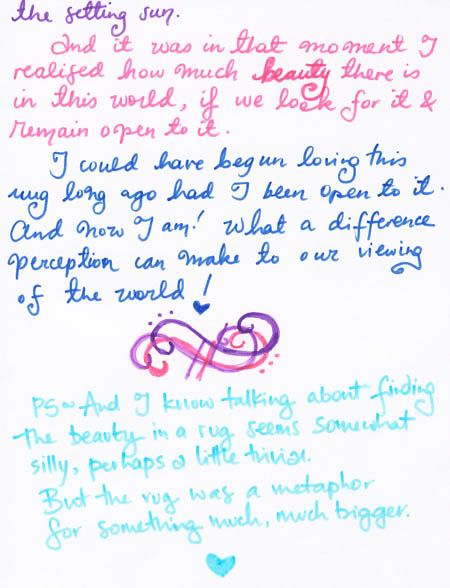 the setting sun.
And it was in that moment I
realised how much beauty there is
in this world, if we look for it &
remain open to it.
I could have begun loving this
rug long ago had I been open to it.
And now I am! What a difference
perception can make to our viewing
of the world!
PS~ And I know talking about finding
the beauty in a rug seems somewhat
silly, perhaps a little trivial.
But the rug was a metaphor
for something much, much bigger.